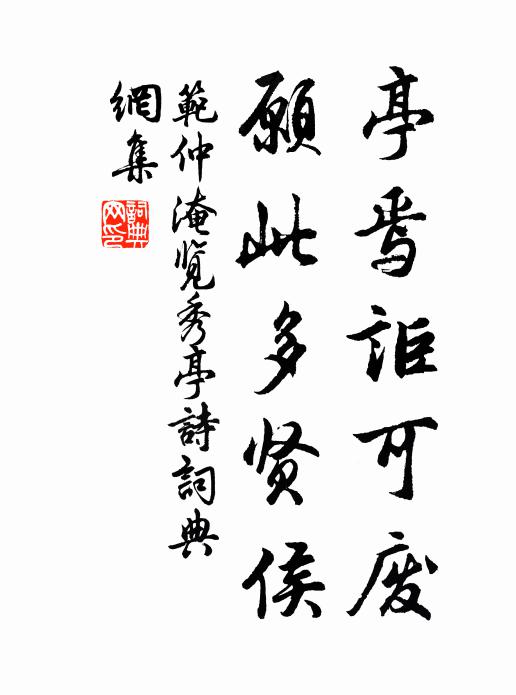 亭焉讵可废
願此多贤侯
範仲淹览秀亭詩詞典
網集
詞典網印